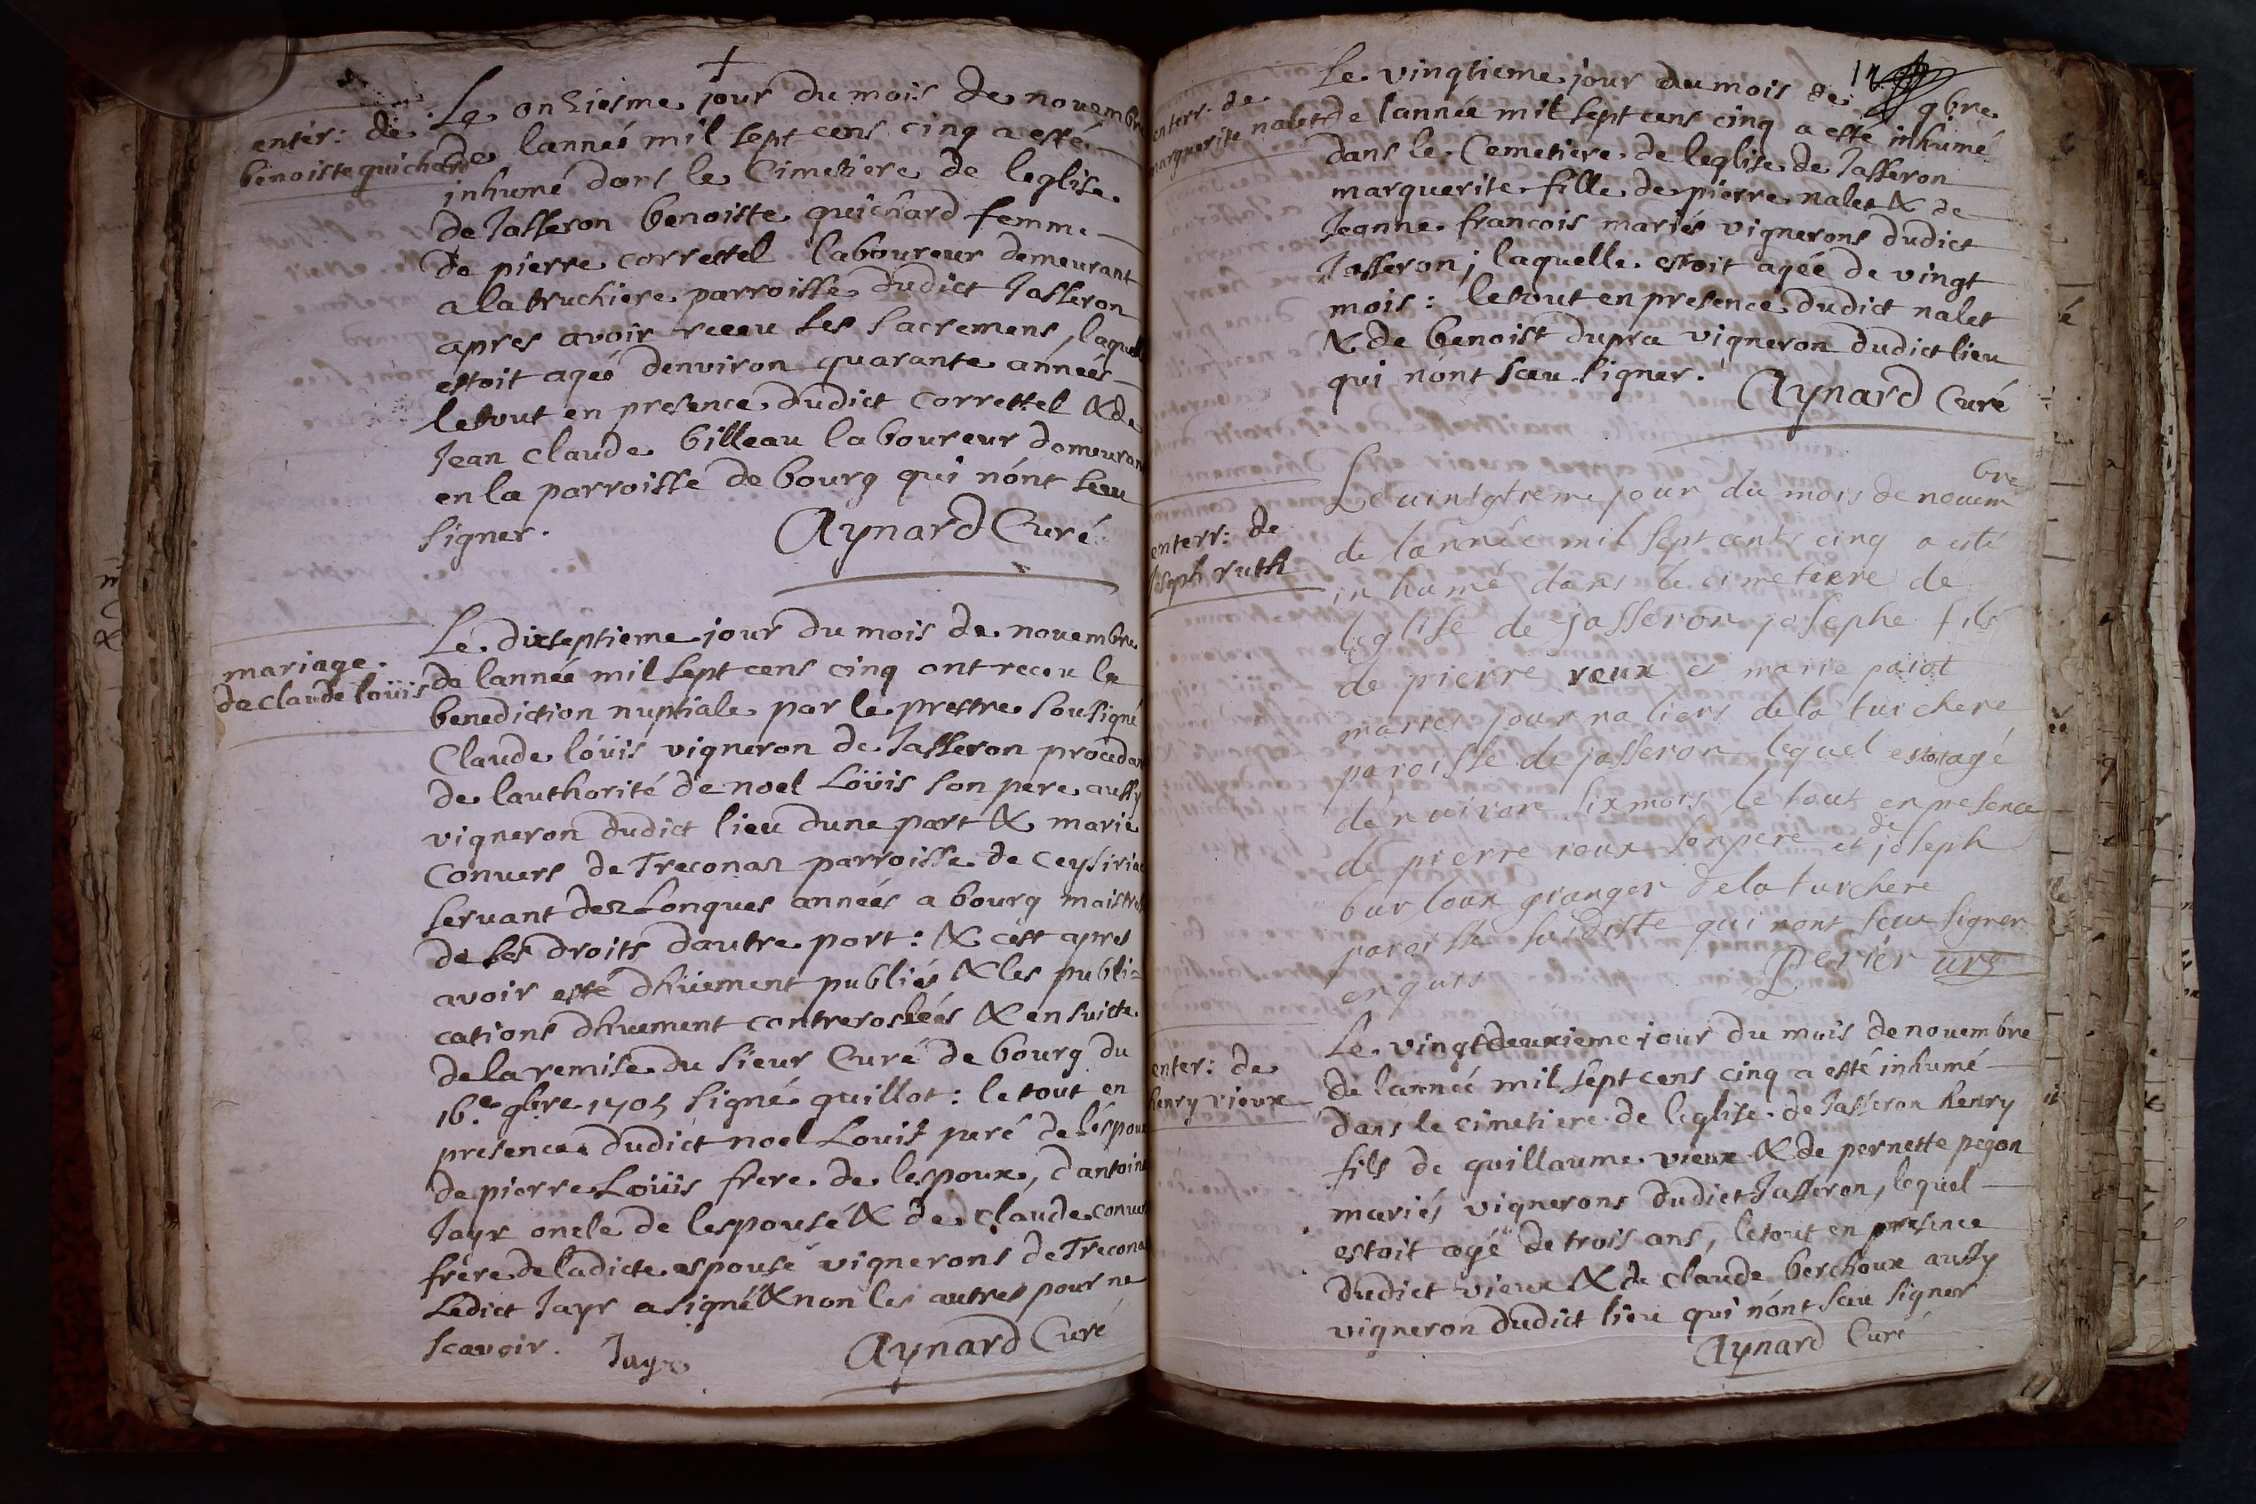 enter: de
benoiste guichard
Le onziesme jour du mois de novembre
de lanneé mil sept cens cinq a esté
inhumé dans le Cimetiere de leglise
de Jasseron benoiste guichard femme
de pierre correttel laboureur demeurant
a la truchiere parroisse dudict Jasseron
apres avoir receu les sacremens, laquelle
estoit ageé denviron quarante années
letout en presence dudict correttel & de
Jean claude billeau laboureur demeurant
en la parroisse de bourg qui nónt sceu
signer. Aynard Curé
mariage
de claude loüis
Le dixseptieme jour du mois de novembre
de lannéé mil sept cens cinq ont receu la
benediction nuptiale par le prestre sousigné
Claude lóüis vigneron de Jasseron procedant
de lauthorité de noel Loüis son pere aussy
vigneron dudict lieu dune part & marie
Convers de Treconaz parroisse de Ceysiria
servant dez longues années a bourg maistresse
de ses droits dautre part: & cést apres
avoir esté dhüement publiés & les publi=
cations dhuement controsléés & en suitte
de la remise du sieur Curé de bourg du
16.e 9bre 1705 signé guillot: le tout en
presence dudict noel Louis peré de léspoux
de pierre Loüis frere de lespoux, dantoine
Jayr oncle de lespousé & de claude convers
frère de ladicte espousé vignerons de Trecona
Ledict Jayr a signé & non les autres pour ne
scavoir. Jayr Aynard Curé
enterr: de
marguerite nalet
Le vingtieme jour du mois de 9bre
de lannéé mil sept cens cinq a esté inhumé
dans le Cemetiere de leglise de Jasseron
marguerite fille de pierre nalet & de
Jeanne francois mariés vignerons dudict
Jasseron; laquelle estoit agée de vingt
mois: letout en presence dudict nalet
& de benoist dupra vigneron dudict lieu
qui nónt sceu signer. Aynard Curé
enterr: de
Joseph ruth
Le uintgtieme jour du mois de nouembre
de lannée mil sept cents cinq a esté
inhumé dans le cimetiere de
leglise de jasseron josephe fils
de pierre roux et marie paiot
maries journaliers de la tuichere
paroisse de jasseron lequel estoit agé
dénuiron six mois le tout en presence
de pierre roux son pere et de joseph
burloux granger de la turchere
paroisse susdiste qui nont sceu signer
enquis Perier urs
enter: de
henry vieux
Le vingtdeuxieme jour du mois de nouembre
de lannéé mil sept cens cinq a esté inhumé
dans le cimetiere de leglise de Jasseron henry
fils de guillaume vieux & de pernette pegon
mariés vignerons dudict Jasseron, lequel
estoit agé de trois ans, letout en presence
dudict vieux & de claude berchoux aussy
vigneron dudict lieu qui nónt sceu signer
Aynard Curé